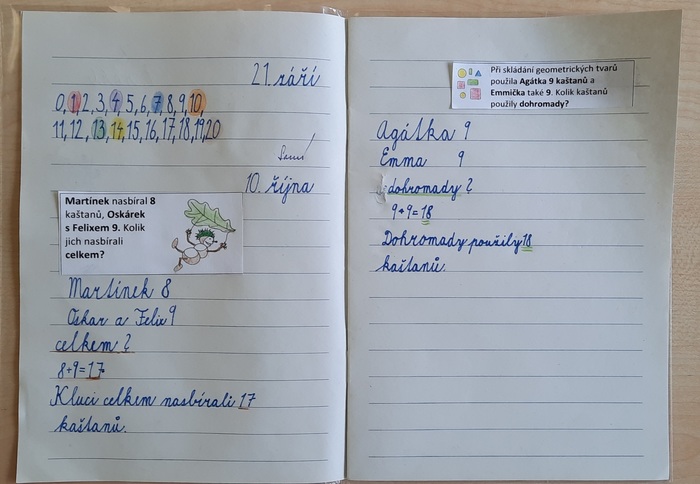 21. září
0, 1, 2, 3, 4, 5, 6, 7, 8, 9, 10,
11, 12, 13, 14, 15, 16, 17, 18, 19, 20
10. října
Martínek nasbíral 8
kaštanů, Oskárek
s Felixem 9. Kolik
jich nasbírali
celkem?
Martínek 8
Oskar a Felix 9
celkem ?
8+9=17
Kluci celkem nasbírali 17
kaštanů.
Při skládání geometrických tvarů
použila Agátka 9 kaštanů a
Emmička také 9. Kolik kaštanů
použily dohromady?
Agátka 9
Emma 9
dohromady ?
9+9=18
Dohromady použily 18
kaštanů.